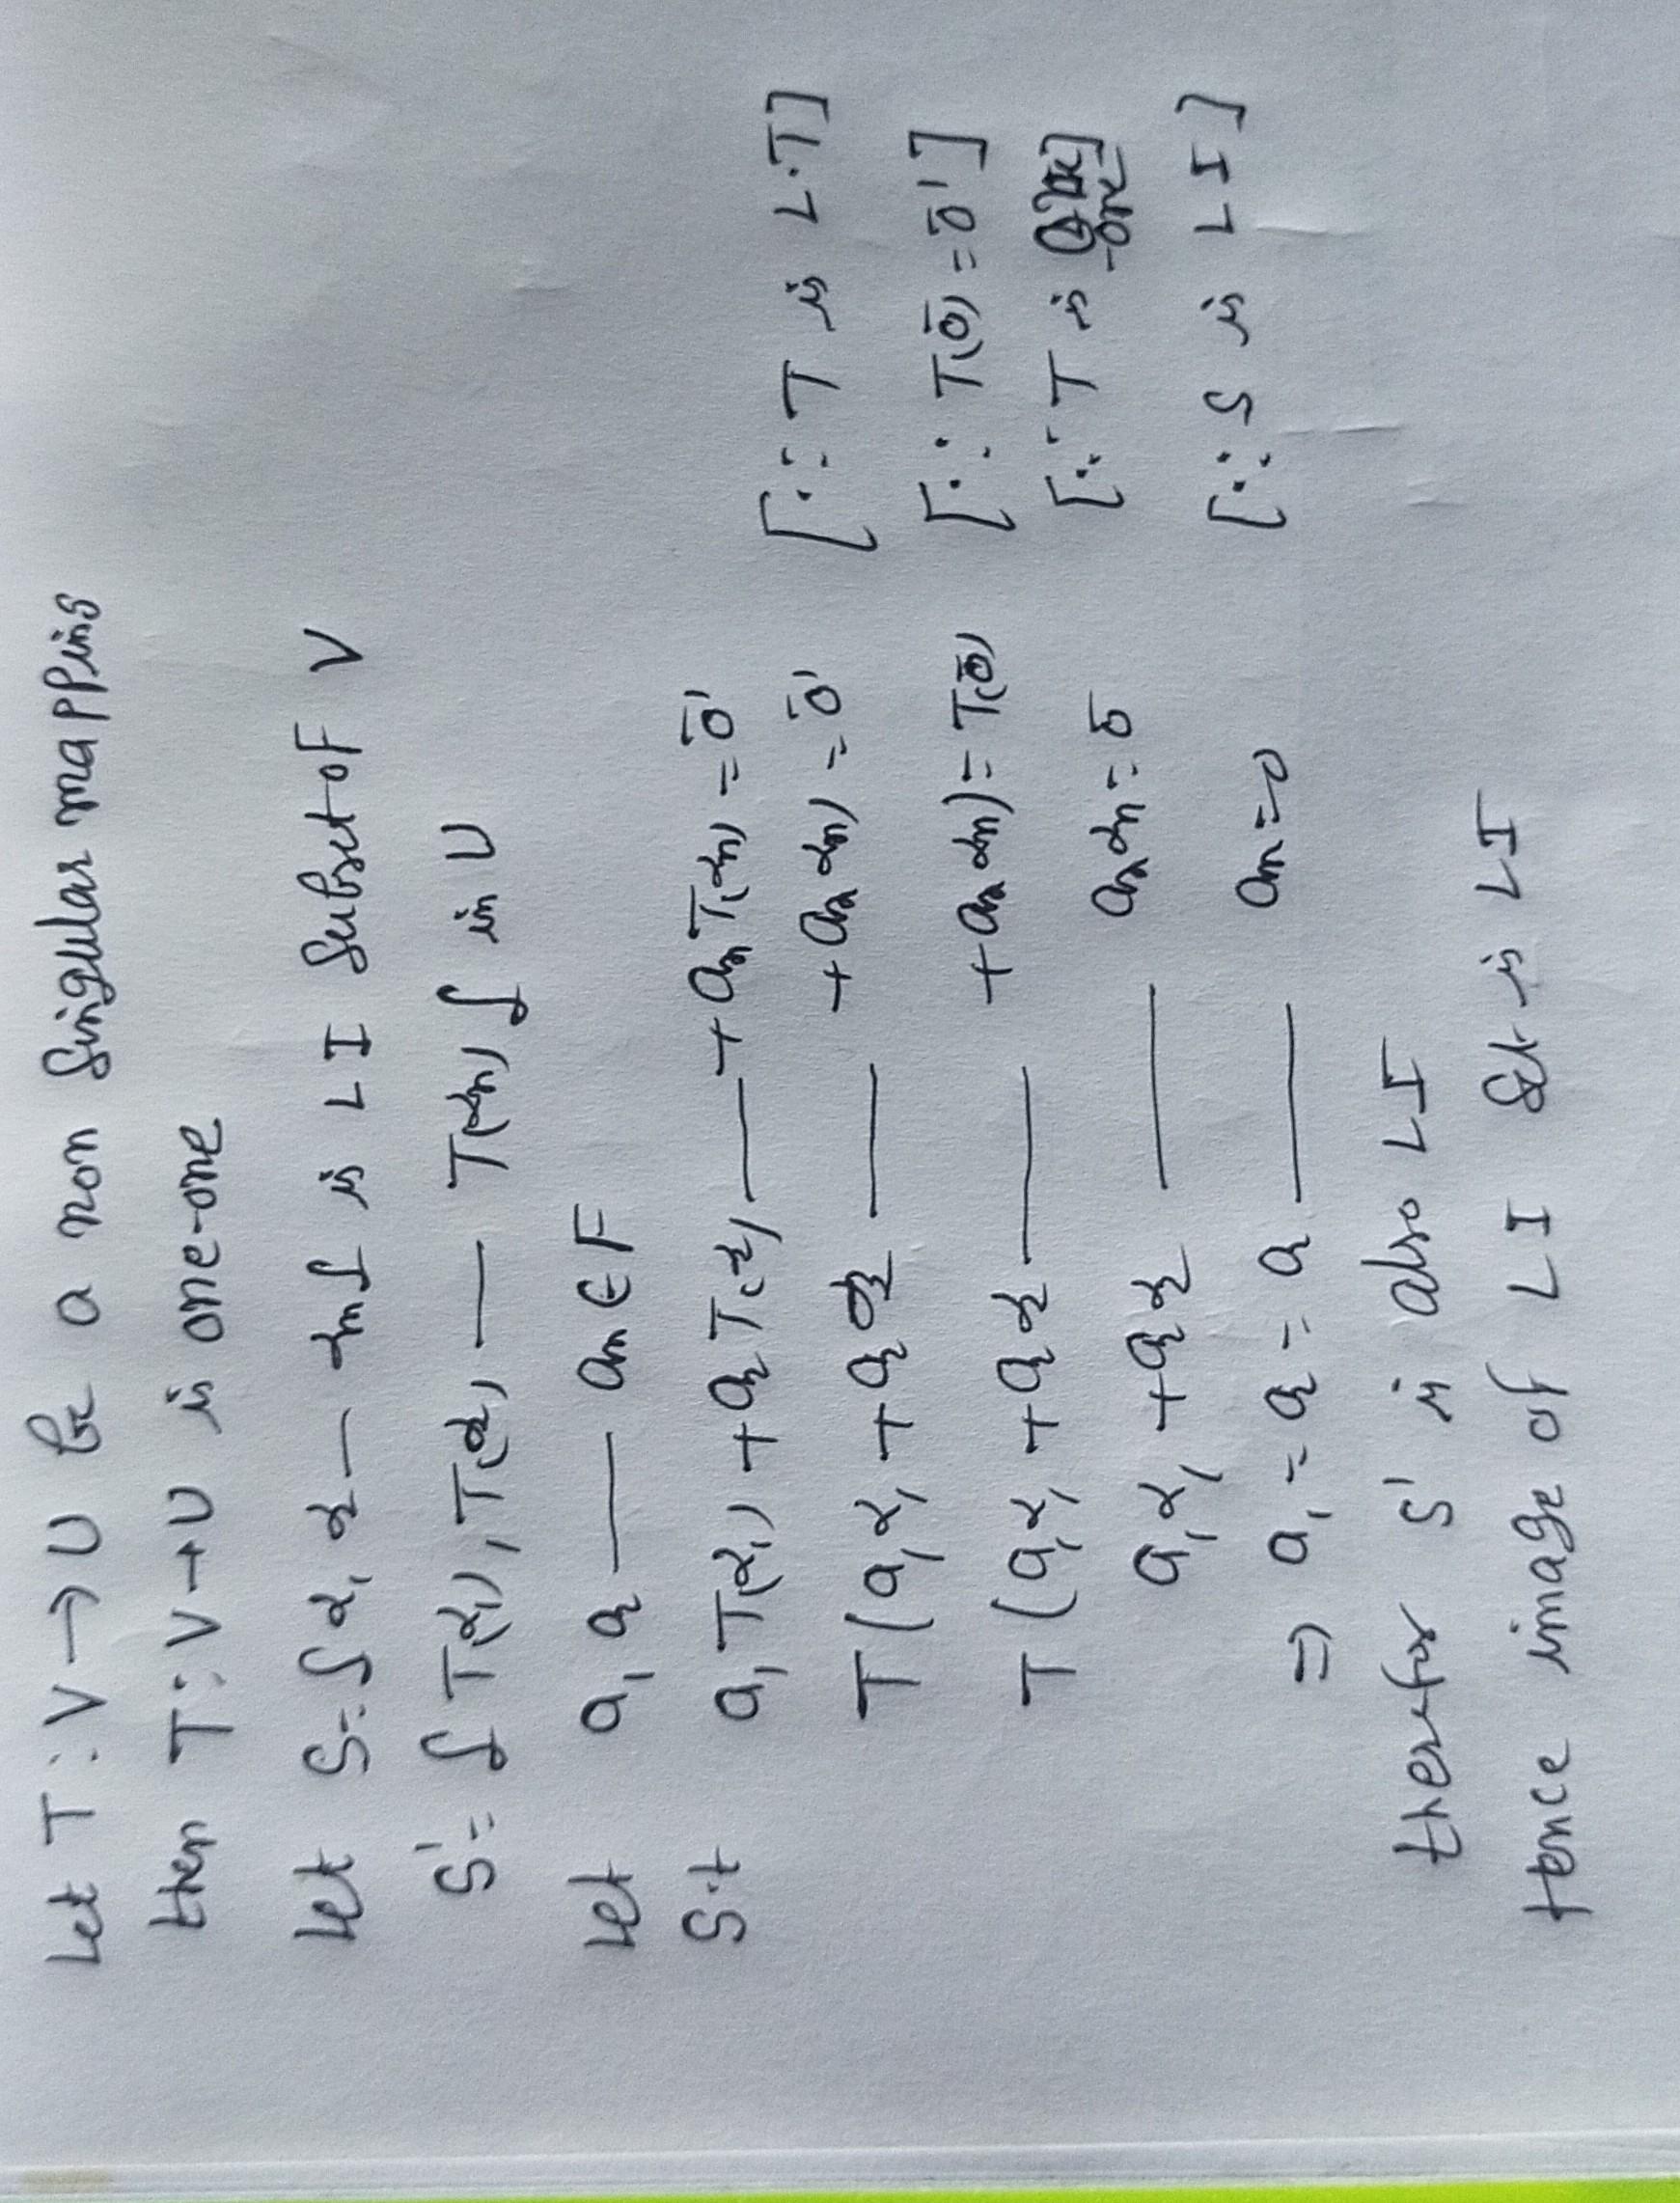 Let T : V → U be a non Singular mapping
then T : V → U is one-one
Let S = { α₁ α₂ — αn } is L I Subset of V
S' = { T(α₁), T(α₂) — T(αn) } in U
Let a₁ a₂ — an ∈ F
S.t a₁ T(α₁) + a₂ T(α₂) — + an T(αn) = ō'
T (a₁ α₁ + a₂ α₂ — + an αn) = ō' [∵ T is L.T]
T (a₁ α₁ + a₂ α₂ — + an αn) = T(ō) [∵ T(ō) = ō']
a₁ α₁ + a₂ α₂ — an αn = ō [∵ T is one -one]
⇒ a₁ = a₂ = a — an = 0 [∵ S is L I]
therefor S' is also LI
Hence image of L I Set is LI